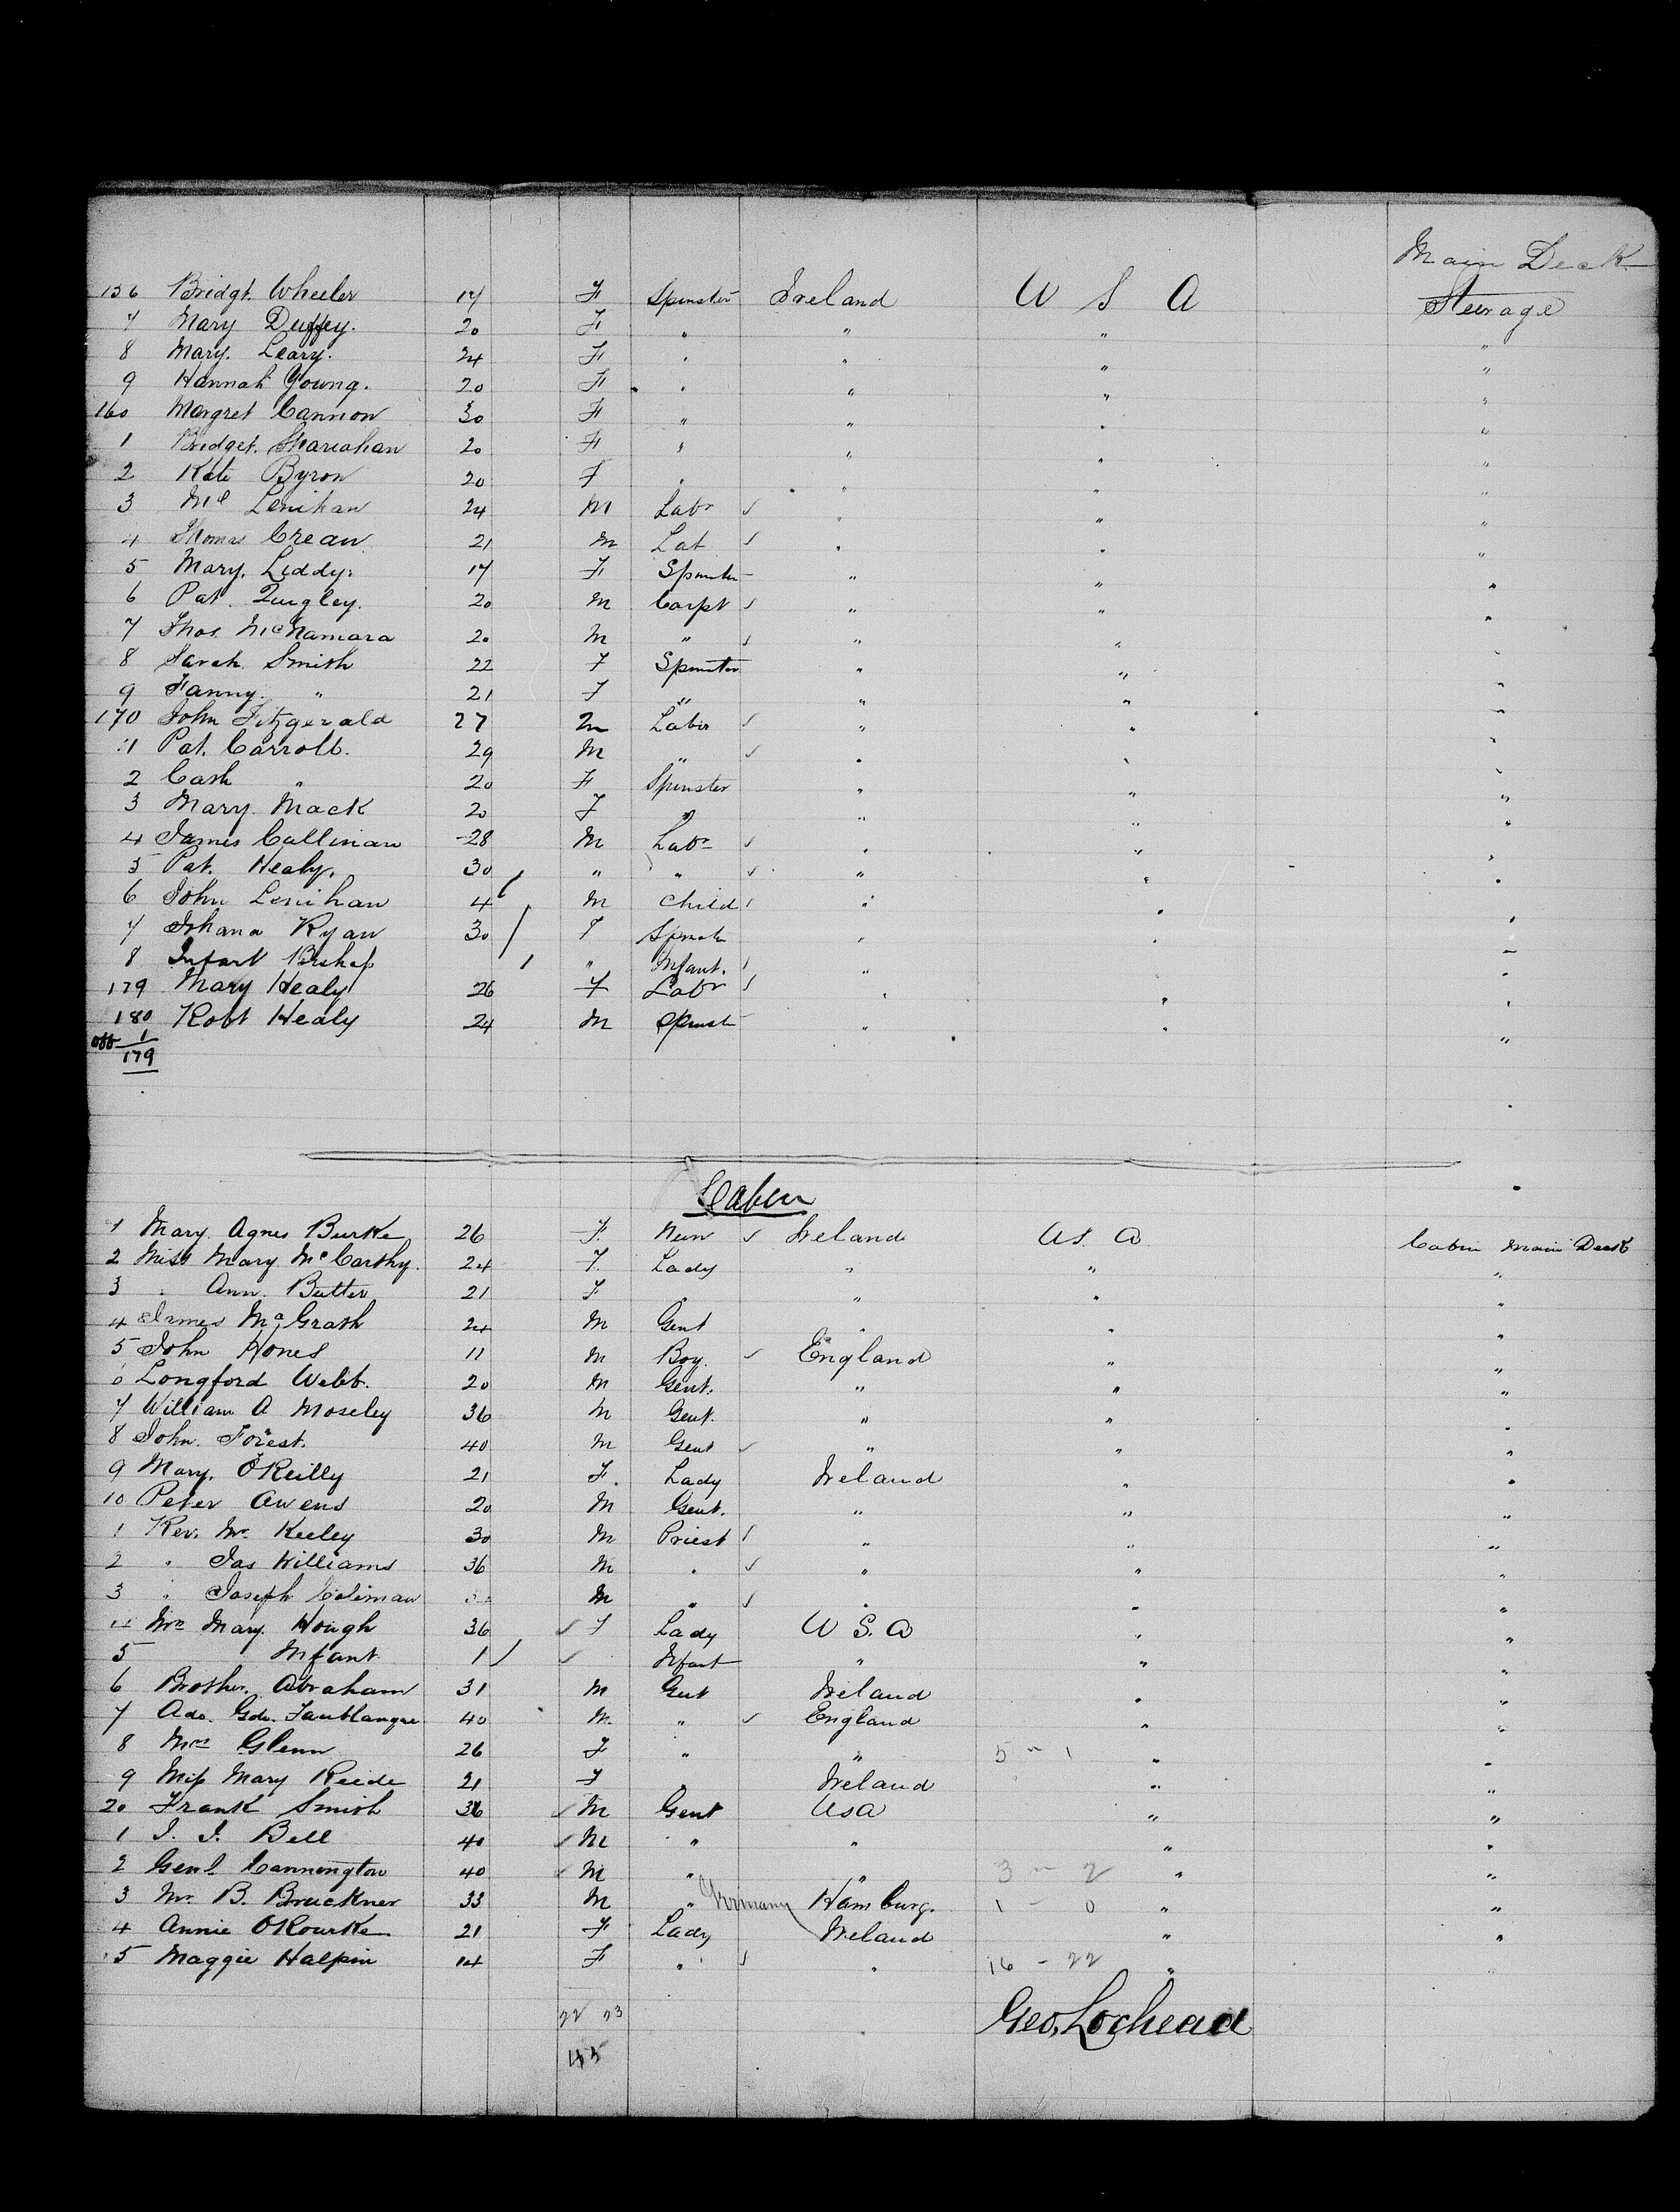 Main Deck
156 Bridgt. Wheeler 17 F Spinster Ireland U S A Steerage
7 Mary Duffey. 20 F " " " "
8 Mary. Leary. 24 F " " " "
9 Hannah Young. 20 F " " " "
160 Margret Cannon 30 F " " " "
1 Bridget. Shanahan 20 F " " " "
2 Kate Byron 20 F " " " "
3 Ml Lenihan 24 M Labr ✓ " " "
4 Thomas Crean 21 M Lab ✓ " " "
5 Mary. Liddy. 17 F Spinster " " "
6 Pat. Quigley. 20 M Carpt ✓ " " "
7 Thos. McNamara 20 M " ✓ " " "
8 Sarah Smith 22 F Spinster " " "
9 Fanny. " 21 F " " " "
170 John Fitzgerald 27 M Labr ✓ " " "
1 Pat. Carroll. 29 M " ✓ " " "
2 Cath " 20 F Spinster " " "
3 Mary. Mack 20 F " " " "
4 James Cullinan 28 M Labr ✓ " " "
5 Pat. Healy. 30 " " ✓ " " "
6 John Lenihan 4 M Child " " "
7 Johana Ryan 30 F Spinster " " "
8 Infant Bishop " Infant. " " "
179 Mary Healy 26 F Labr " " "
180 Robt Healy 24 M Spinst " " "
off 1
179
Cabin
1 Mary Agnes Burke 26 F. Nun ✓ Ireland U S. A Cabin Main Deck
2 Miss Mary McCarthy. 24 F. Lady " " "
3 " Ann. Butler 21 F " " " "
4 James McGrath 24 M Gent " " "
5 John Hones 11 M Boy. ✓ England " "
6 Longford Webb. 20 M Gent. " " "
7 William A Moseley 36 M Gent. " " "
8 John. Forest. 40 M Gent ✓ " " "
9 Mary. O'Reilly 21 F. Lady Ireland " "
10 Peter Owens 20 M Gent. " " "
1 Rev. Mr. Keeley 30 M Priest " " "
2 " Jas Williams 36 M " ✓ " " "
3 " Joseph Coleman M " ✓ " " "
4 Mrs Mary. Hough 36 ✓ F Lady U S. A " "
5 Infant 1 ✓ Infant " " "
6 Brother. Abraham 31 M Gent Ireland " "
7 Ado. Gde. 40 M. " ✓ England " "
8 Mrs Glenn 26 F " " 5 - 1 " "
9 Miss Mary Reide 21 F " Ireland " "
20 Frank Smith 36 ✓ M Gent USA " "
1 J. J. Bell 40 ✓ M " " " "
2 Genl Cannington 40 ✓ M " " 3 - 2 " "
3 Mr. B. Bruckner 33 M " Germany Hamburg. 1 - 0 " "
4 Annie O'Rourke 21 F Lady Ireland " "
5 Maggie Halpin 14 F " ✓ " 16 - 22 " "
22 23 Geo. Lochead
45